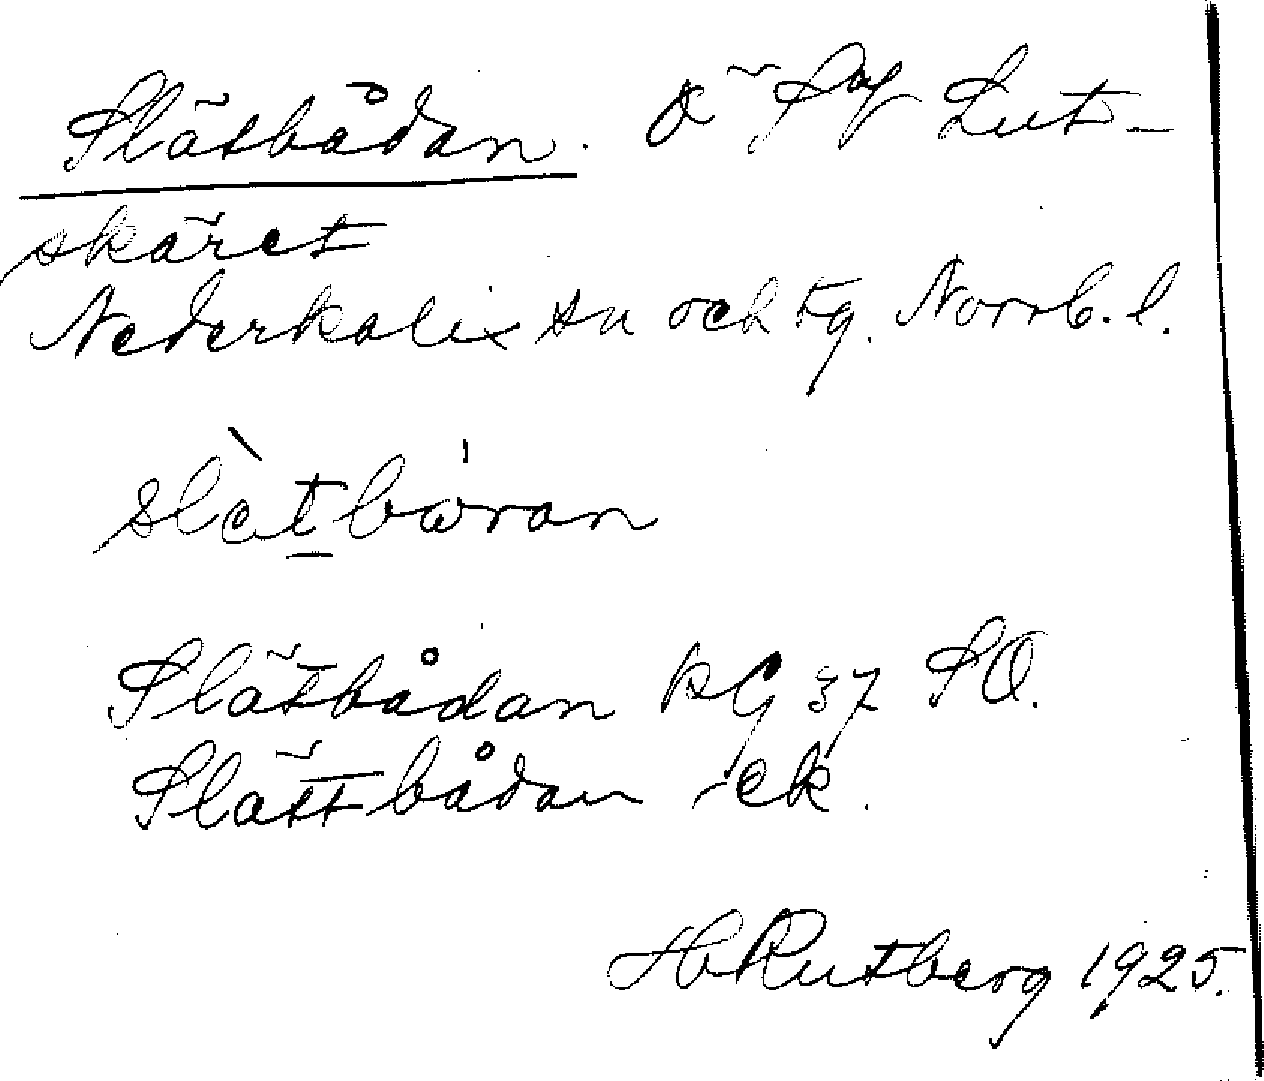 Slätbådan. Ö SV Lut-
skäret
Nederkalix sn och tg. Norrb. l.
slàtbωran
Slätbådan KG 37 SO.
Slättbådan ek.
H Rutberg 1925.